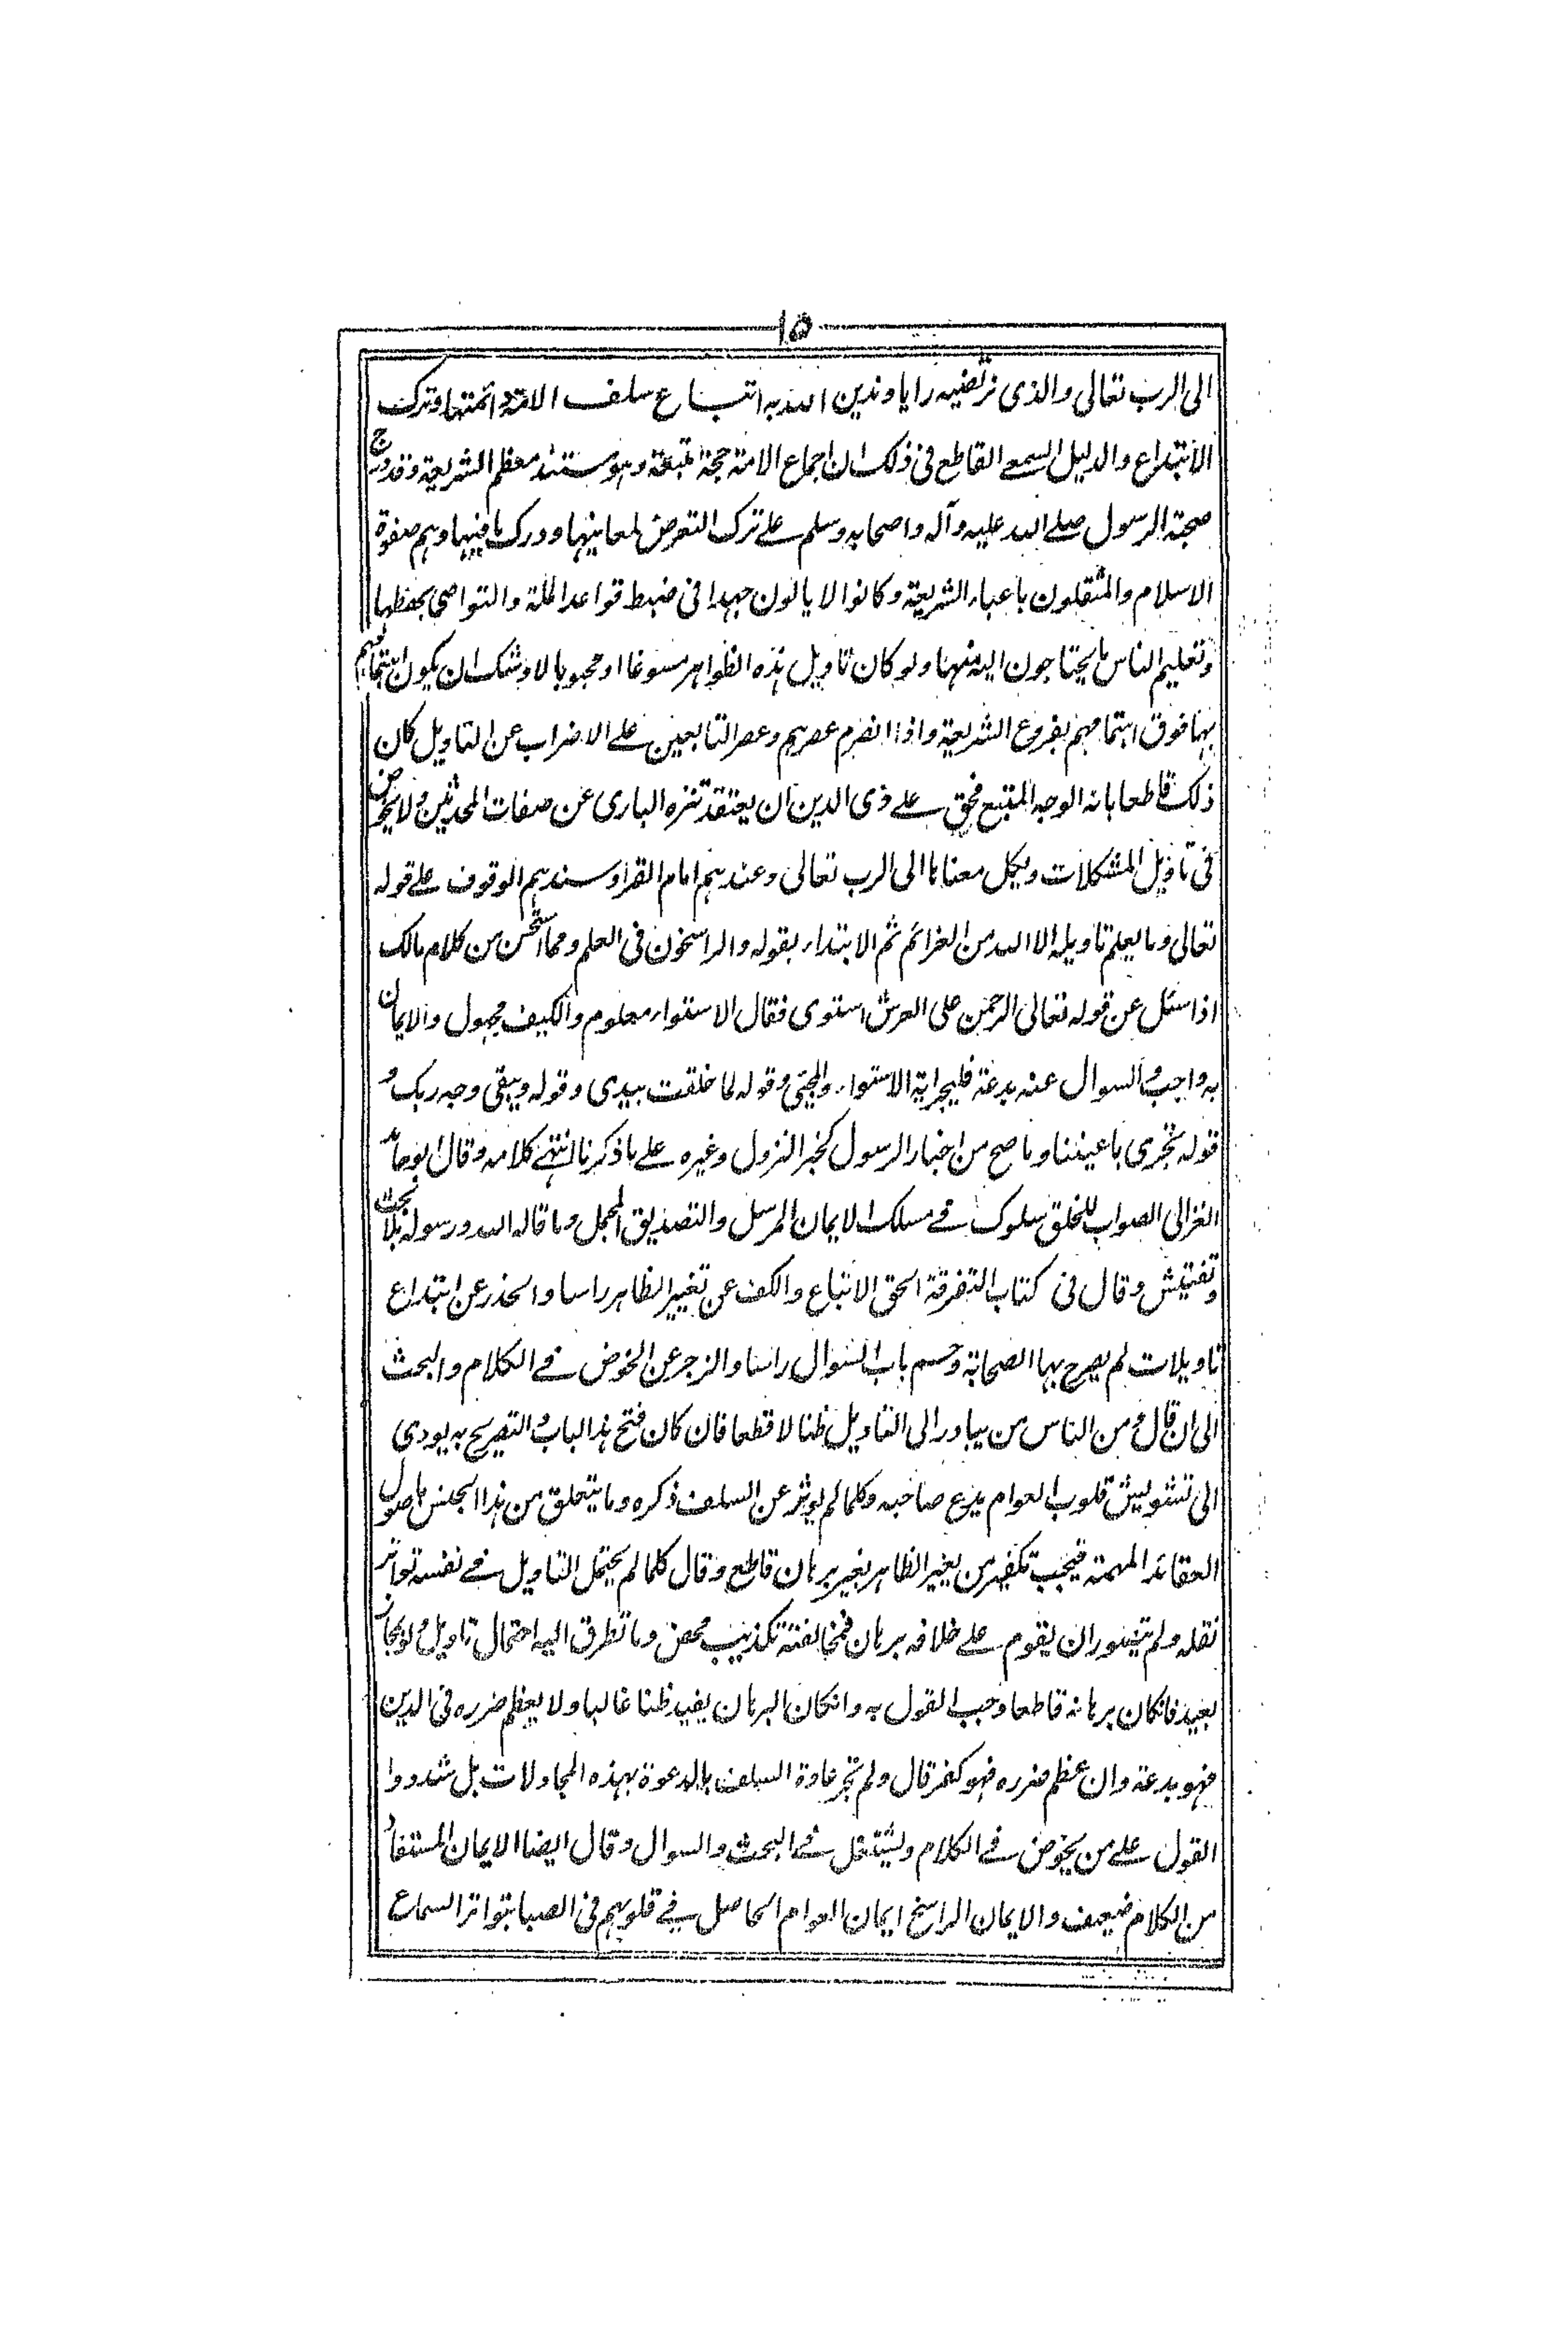 ١٥
الى الرب تعالى والذى نرتضيه رايا وندين الله به اتباع سلف الامة وائمتها وترك
الابتداع والدليل السمعے القاطع فى ذلك ان اجماع الامة حجة متبعة وهو مستند معظم الشريعة وقد درج
صحبة الرسول صلے الله عليه وآله واصحابه وسلم علے ترك التعرض لمعانيها ودرك ما فيها وهم صفوة
الاسلام والمثقلون باعباء الشريعة وكانوا لا يالون جهدا فى ضبط قواعد الملة والتواصى بحفظها
وتعليم الناس ما يحتاجون اليه منها ولو كان تاويل هذه الظواهر مسوغا او محبوبا لاوشك ان يكون اهتمامهم
بها فوق اهتمامهم بفروع الشريعة واذا انصرم عصرهم وعصر التابعين علے الاضراب عن التاويل كان
ذلك قاطعا بانه الوجه المتبع فحق علے ذى الدين ان يعتقد تنزه البارى عن صفات المحدثين ولا يخوض
فى تاويل المشكلات ويكل معناها الى الرب تعالى وعندهم امام القراء وسندهم الوقوف علے قوله
تعالى وما يعلم تاويله الا الله من العزائم ثم الابتداء بقوله والراسخون فى العلم ومما استحسن من كلام مالك
اذا سئل عن قوله تعالى الرحمن على العرش استوى فقال الاستواء معلوم والكيف مجهول والايمان
به واجب والسوال عنه بدعة فليجر اية الاستواء والمجئ وقوله لما خلقت بيدى وقوله ويبقى وجه ربك و
قوله تجرى باعيننا وما صح من اخبار الرسول كخبر النزول وغيره علے ما ذكرنا انتهے كلامه وقال ابو حامد
الغزالى الصواب للخلق سلوك فے مسلك الايمان المرسل والتصديق المجمل وما قاله الله ورسوله بلا بحث
وتفتيش وقال فى كتاب التفرقة الحق الاتباع والكف عن تغيير الظاهر راسا والحذر عن ابتداع
تاويلات لم يصرح بها الصحابة وحسم باب السوال راسا والزجر عن الخوض فے الكلام والبحث
الى ان قال ومن الناس من يبادر الى التاويل ظنا لا قطعا فان كان فتح هذا الباب والتصريح به يودى
الى تشويش قلوب العوام بدع صاحبه وكلما لم يوثر عن السلف ذكره وما يتعلق من هذا الجنس باصول
العقائد المهمة فيجب تكفير من يغير الظاهر بغير برهان قاطع وقال كلما لم يحتمل التاويل فے نفسه تواتر
نقله ولم يتصور ان يقوم علے خلافه برهان فمخالفته تكذيب محض وما تطرق اليه احتمال تاويل ولو بمجاز
بعيد فانكان برهانه قاطعا وجب القول به وانكان البرهان يفيد ظنا غالبا ولا يعظم ضرره فى الدين
فهو بدعة وان عظم ضرره فهو كفر قال ولم تجر عادة السلف بالدعوة بهذه المجاولات بل شددوا
القول علے من يخوض فے الكلام ويشتغل فے البحث والسوال وقال ايضا الايمان المستفاد
من الكلام ضعيف والايمان الراسخ ايمان العوام الحاصل فے قلوبهم فى الصبا بتواتر السماع